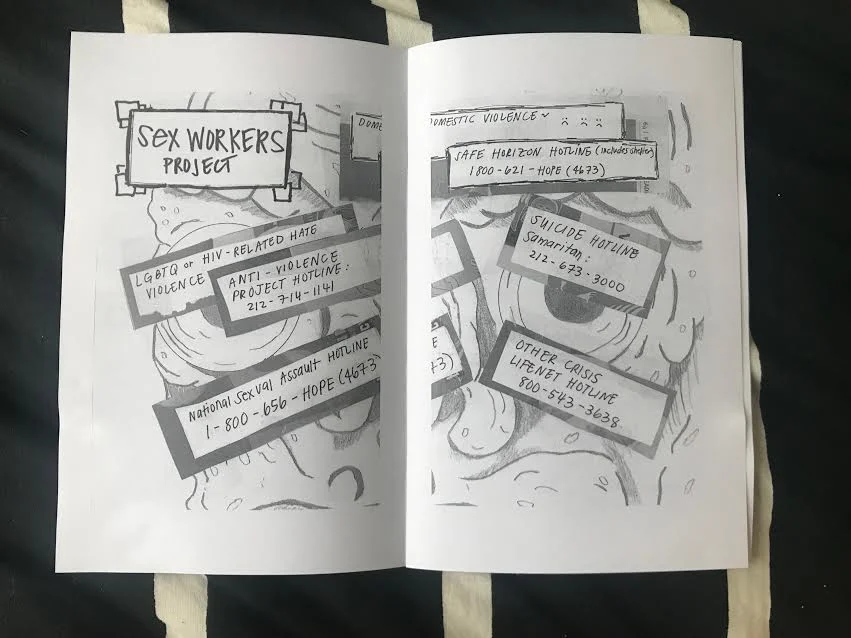 SEX WORKERS
PROJECT
DOME
LGBTQ or HIV-RELATED HATE
VIOLENCE
ANTI-VIOLENCE
PROJECT HOTLINE:
212-714-1141
National Sexual Assault HOTLINE
1-800-656-HOPE (4673)
DOMESTIC VIOLENCE ~
SAFE HORIZON HOTLINE (includes shelter)
1800-621-HOPE (4673)
SUICIDE HOTLINE
Samaritan:
212-673-3000
E
73)
OTHER CRISIS
LIFENET HOTLINE
800-543-3638